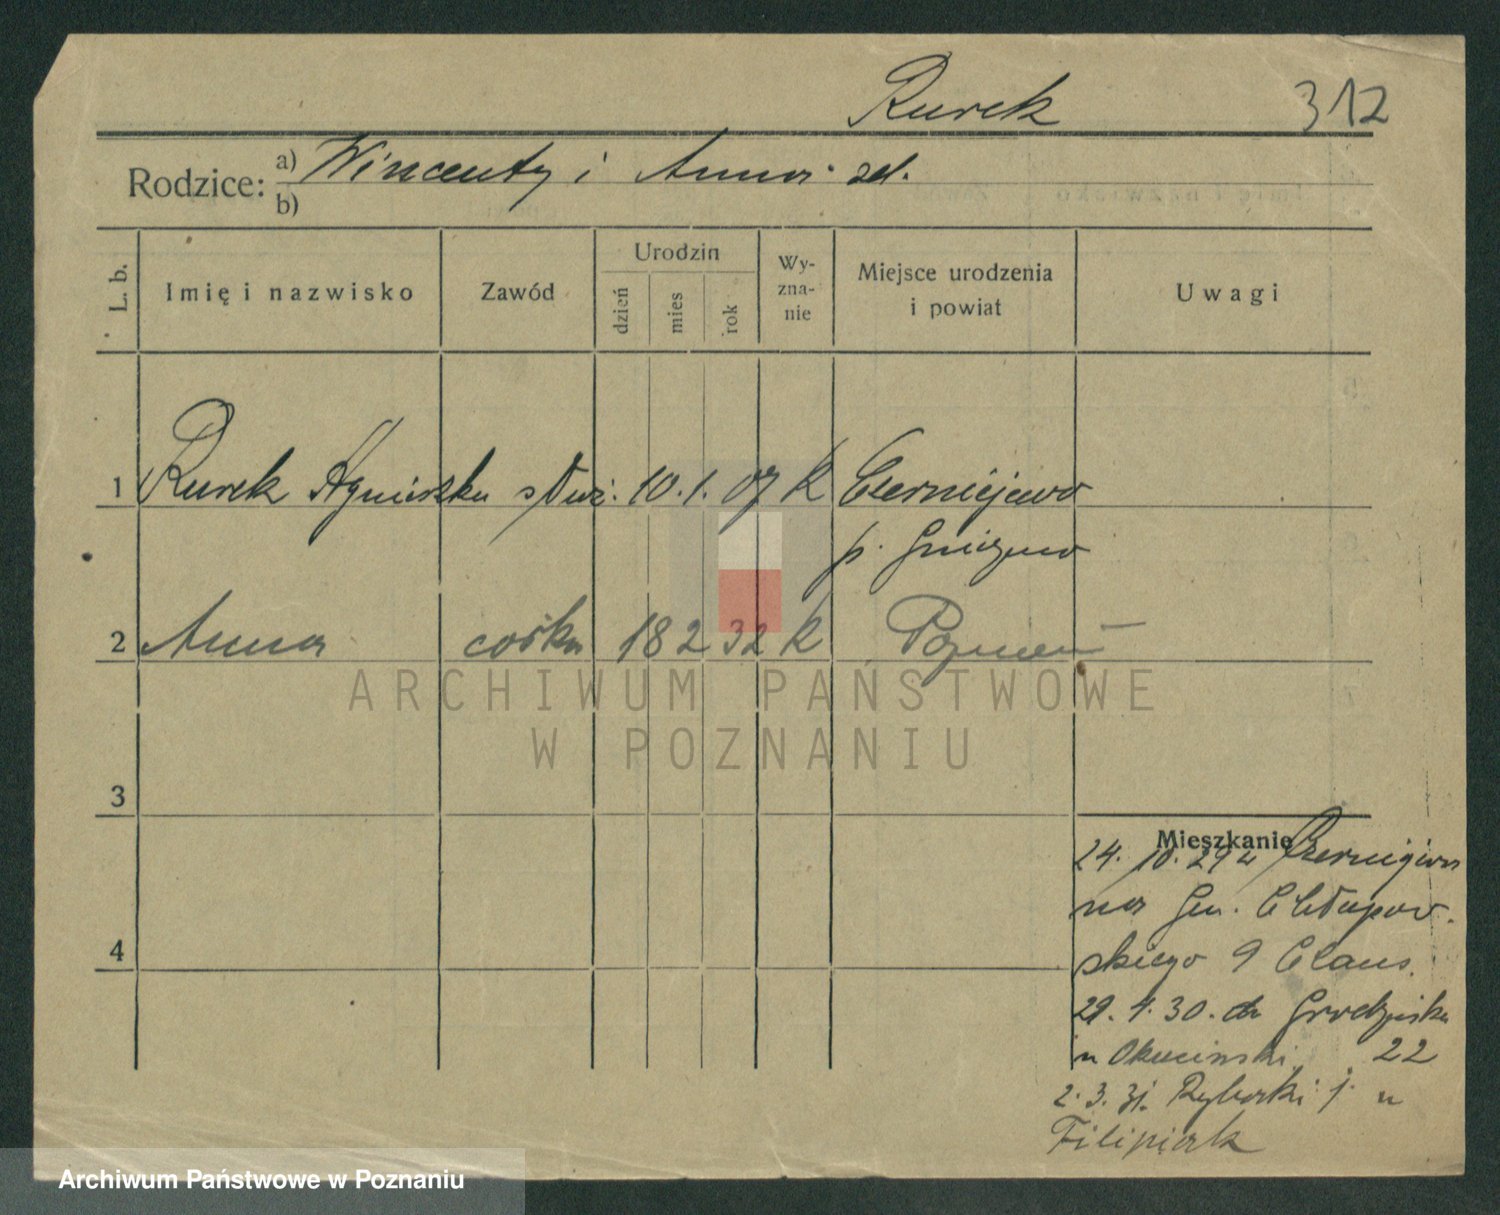 Rurek 312
Rodzice: a) Wincenty i Anna
b)
L. b. Imię i nazwisko Zawód Urodzin dzień mies rok Wyznanie Miejsce urodzenia i powiat Uwagi
1 Rurek Agnieszka służ. 10. 1. 07 k Czerniejewo
p. Gniezno
2 Anna córka 18 2 32 k Poznań
ARCHIWUM PAŃSTWOWE
W POZNANIU
3
Mieszkanie
24. 10. 29 z Czerniejewa
na Gen. Chłapow-
4
skiego 9
29. 4. 30. do Grodziska
u 22
2. 3. 31. Rybaki u
Filipiak
Archiwum Państwowe w Poznaniu